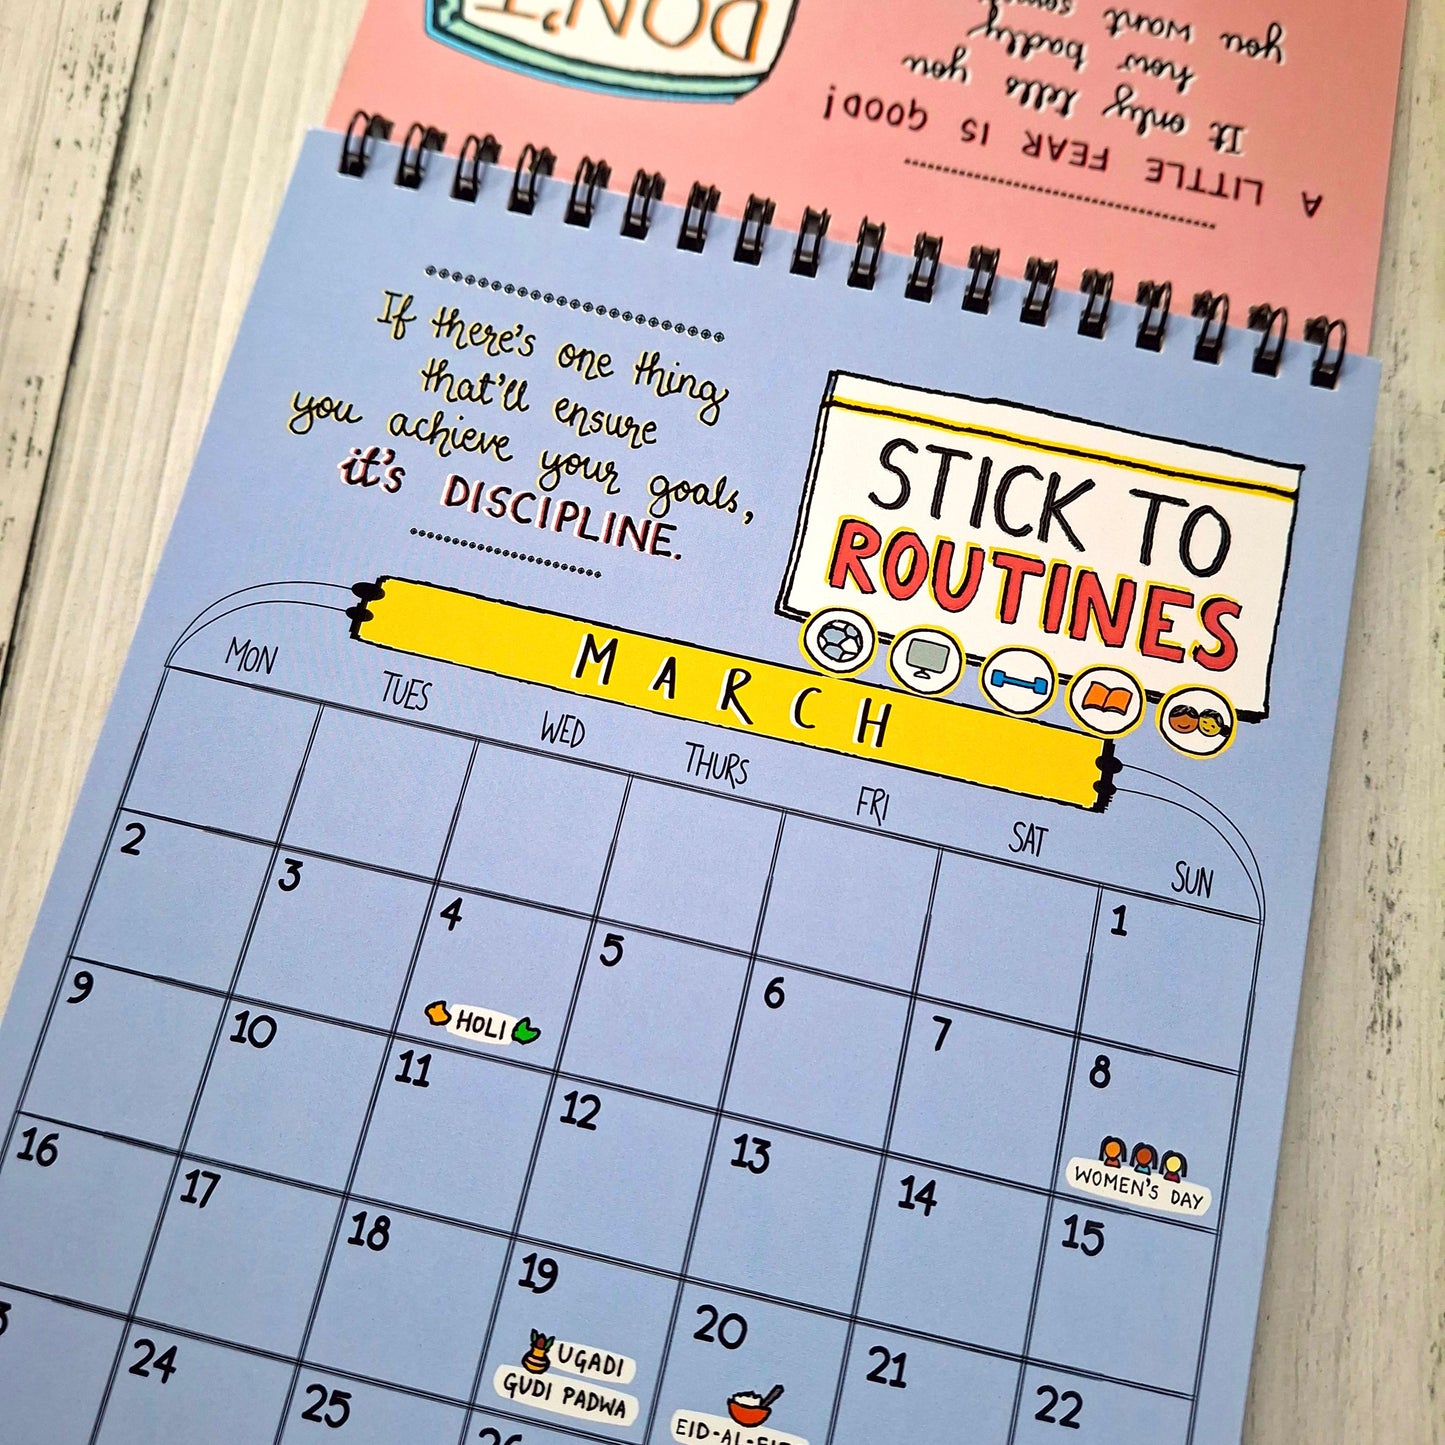 DON'T
A LITTLE FEAR IS GOOD!
It only tells you
how badly
you want
If there's one thing
that'll ensure
you achieve your goals,
it's DISCIPLINE.
STICK TO
ROUTINES
MARCH
MON TUES WED THURS FRI SAT SUN
1
2 3 4 5 6 7 8
HOLI
WOMEN'S DAY
9 10 11 12 13 14 15
16 17 18 19 20 21 22
UGADI
GUDI PADWA
EID-AL-
24 25